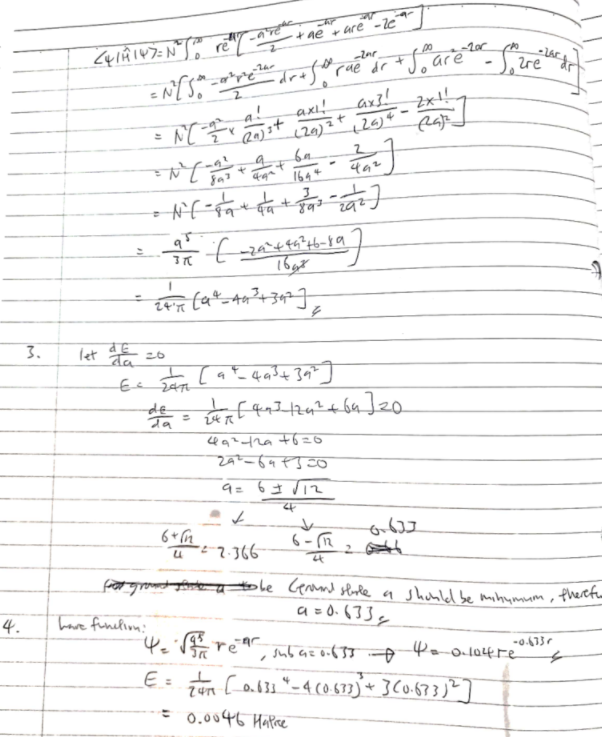 <ψ|Ĥ|ψ> = N² ∫₀^∞ re^-ar [ -a²re^-ar / 2 + ae^-ar + are^-ar - 2e^-ar ]
= N² [ ∫₀^∞ -a²r²e^-2ar / 2 dr + ∫₀^∞ rae^-2ar dr + ∫₀^∞ are^-2ar - ∫₀^∞ 2re^-2ar dr ]
= N² [ -a²/2 × 2!/(2a)³ + a×1!/(2a)² + a×3!/(2a)⁴ - 2×1!/(2a)² ]
= N² [ -a²/8a³ + a/4a² + 6a/16a⁴ - 2/4a² ]
= N² [ -1/8a + 1/4a + 3/8a³ - 1/2a² ]
= a⁵/3π · [ (-2a²+4a²+6-8a)/16a³ ]
= 1/24π [a⁴-4a³+3a²]
3. let dE/da = 0
E = 1/24π [a⁴-4a³+3a²]
dE/da = 1/24π [4a³-12a²+6a] = 0
4a²-12a+6=0
2a²-6a+3=0
a = (6 ± √12)/4
(6+√12)/4 = 2.366 (6-√12)/4 = 0.633
be Ground state a should be minimum, therefo
a = 0.633
4. wave function:
ψ = √(a⁵/3π) re^-ar, sub a=0.633 → ψ = 0.104re^-0.633r
E = 1/24π [0.633⁴-4(0.633)³+3(0.633)²]
= 0.0046 Hatree